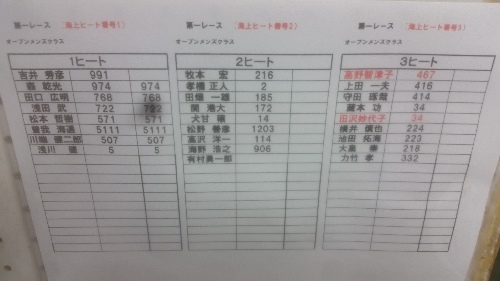 第一レース （海上ヒート番号1）
オープンメンズクラス
1ヒート
吉井 秀彦 991
乾光 974 974
田口 広明 768 768
浅田 武 722 722
松本 哲樹 571 571
曽我 海遥 5111 5111
川畑 健二郎 507 507
浅川 5 5
第一レース （海上ヒート番号2）
オープンメンズクラス
2ヒート
牧本 宏 216
孝橋 正人 2
田畑 一雄 185
関 港大 172
犬甘 順 14
松野 1203
高沢 洋一 114
海野 浩之 906
有村勇一郎
第一レース （海上ヒート番号3）
オープンメンズクラス
3ヒート
高野智津子 467
上田 一夫 416
守田 琢哉 414
蔵本 功 34
田沢妙代子 34
横井 慎也 224
池田 拓海 223
大泉 泰 218
力竹 孝 332